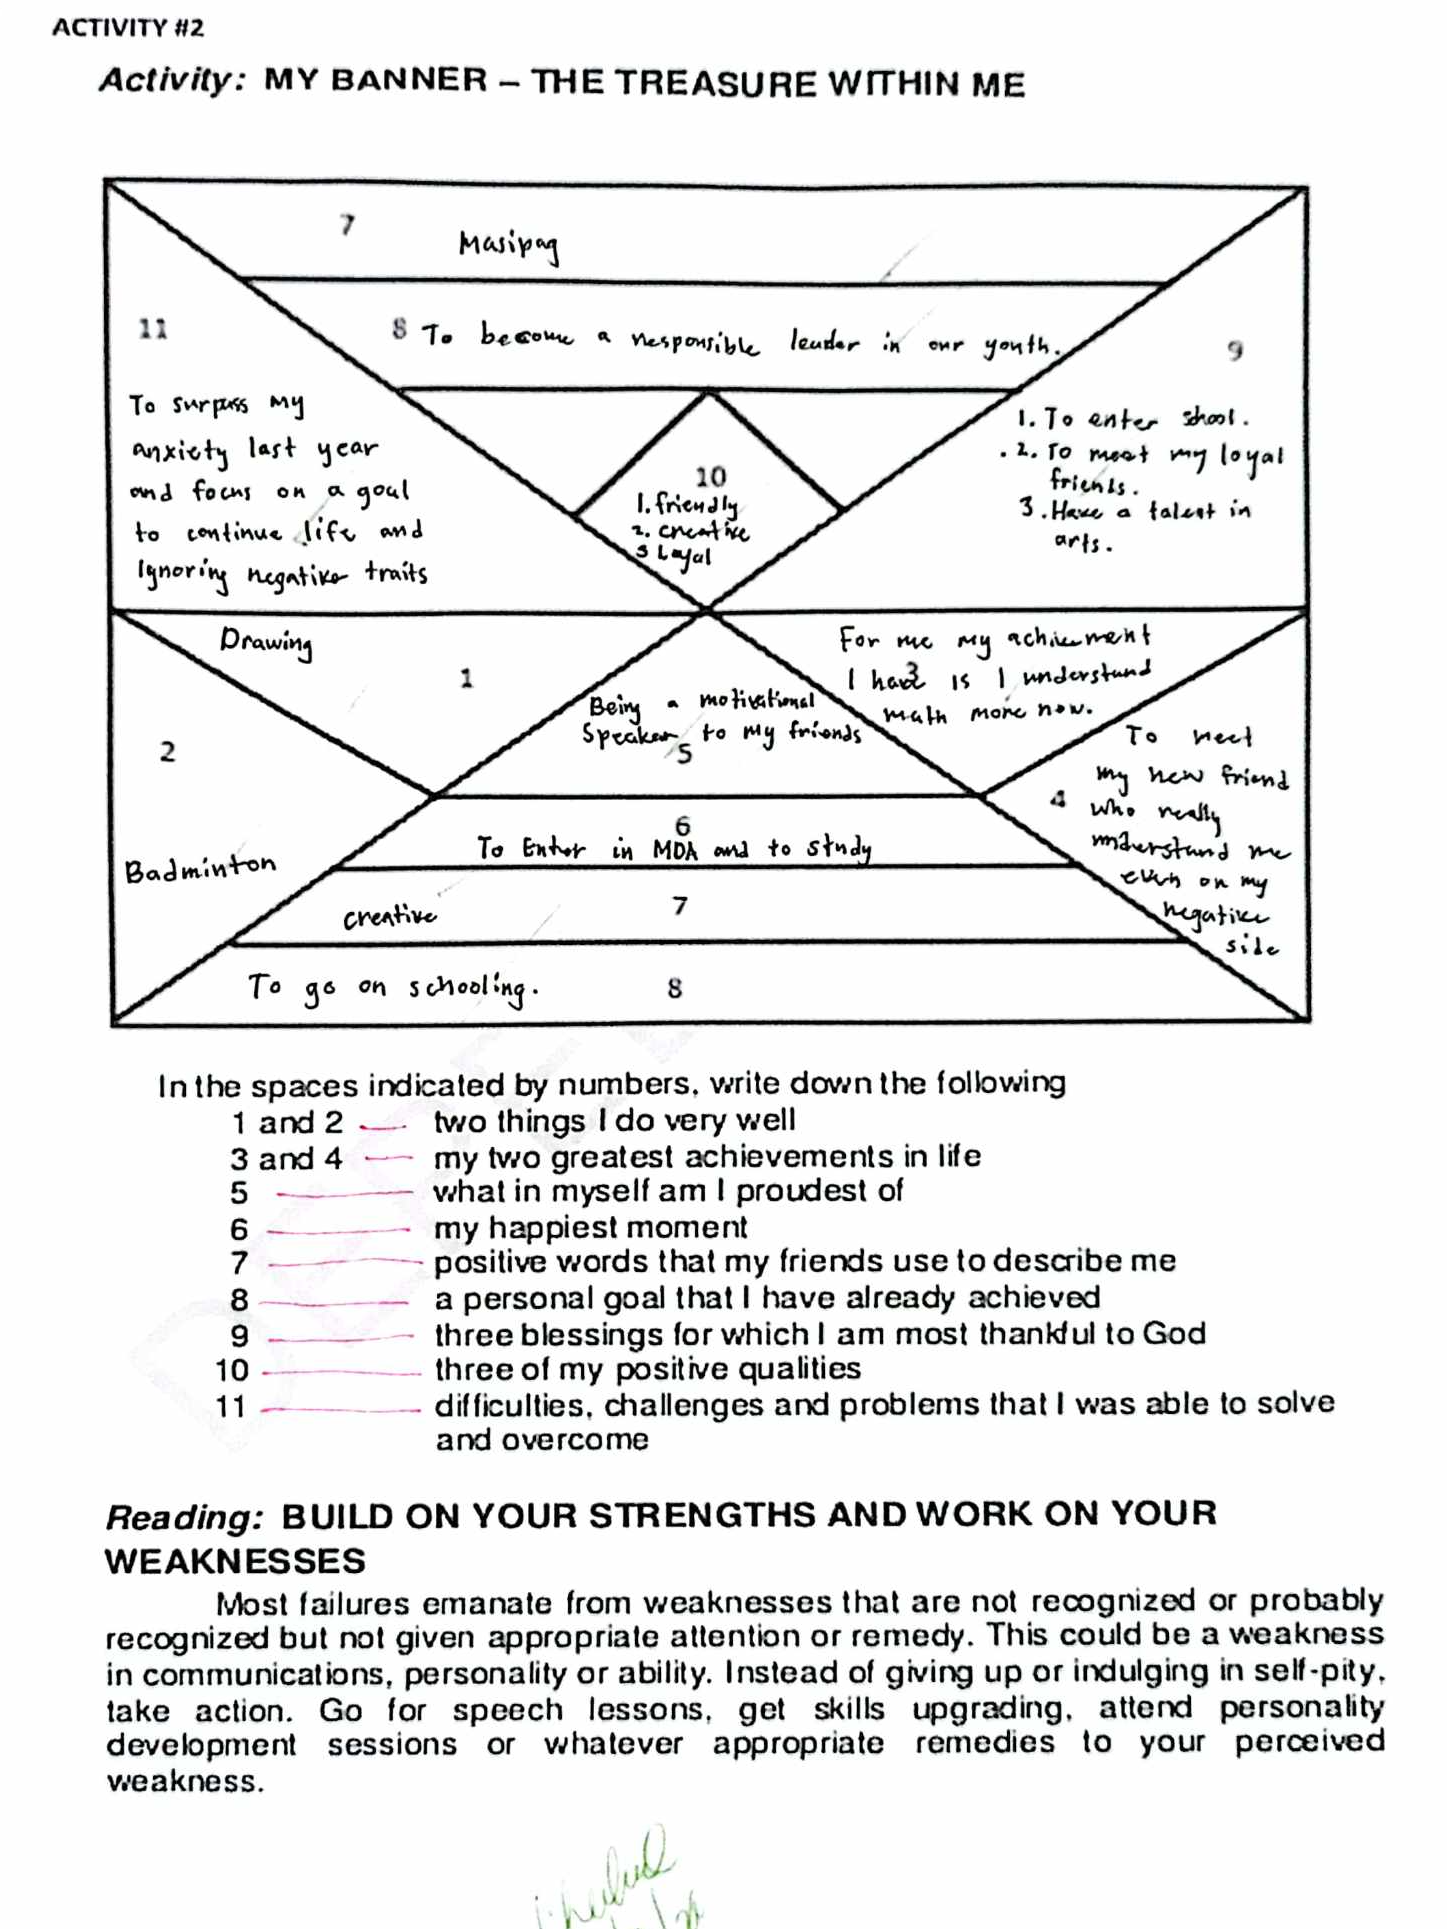 ACTIVITY #2
Activity: MY BANNER – THE TREASURE WITHIN ME
7
Masipag
8 To become a responsible leader in our youth.
11
To surpass my
anxiety last year
and focus on a goal
to continue life and
Ignoring negative traits
9
1. To enter school.
2. To meet my loyal
friends.
3. Have a talent in
arts.
10
1. friendly
2. creative
3 Loyal
Drawing
1
2
Badminton
For me my achievment
I have is I understand
3
math more now.
Being a motivational
Speaker to my friends
5
To meet
my new friend
4 who really
understand me
even on my
negative
side
6
To Enter in MDA and to study
creative 7
To go on schooling. 8
In the spaces indicated by numbers, write down the following
1 and 2 two things I do very well
3 and 4 my two greatest achievements in life
5 what in myself am I proudest of
6 my happiest moment
7 positive words that my friends use to describe me
8 a personal goal that I have already achieved
9 three blessings for which I am most thankful to God
10 three of my positive qualities
11 difficulties, challenges and problems that I was able to solve
and overcome
Reading: BUILD ON YOUR STRENGTHS AND WORK ON YOUR
WEAKNESSES
Most failures emanate from weaknesses that are not recognized or probably
recognized but not given appropriate attention or remedy. This could be a weakness
in communications, personality or ability. Instead of giving up or indulging in self-pity,
take action. Go for speech lessons, get skills upgrading, attend personality
development sessions or whatever appropriate remedies to your perceived
weakness.